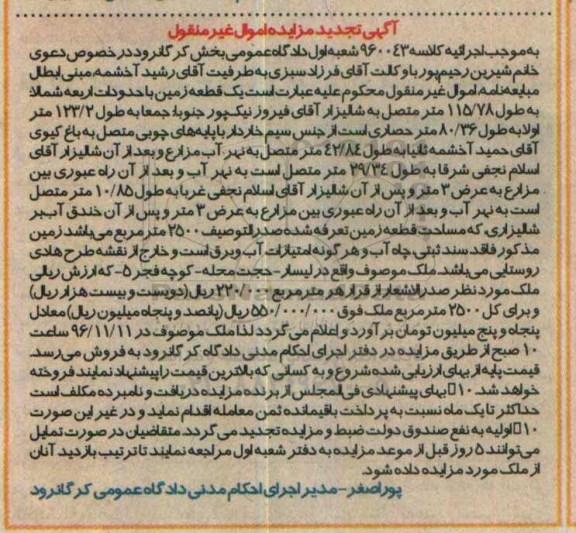 آگهی تجدید مزایده اموال غیر منقول
به موجب اجرائیه کلاسه ۹۶۰۰۴۳ شعبه اول دادگاه عمومی بخش کرگانرود در خصوص دعوی
خانم شیرین رحیم پور با وکالت آقای فرزاد سبزی به طرفیت آقای رشید آخشمه، مبنی ابطال
مبایعه نامه، اموال غیر منقول محکوم علیه عبارت است یک قطعه زمین با حدودات اربعه شمالا:
به طول ۱۱۵/۷۸ متر متصل به شالیزار آقای فیروز نیک پور جنوبا: جمعا به طول ۱۲۳/۲ متر
اولا به طول ۸۰/۳۶ متر حصاری است از جنس سیم خاردار با پایه های چوبی متصل به باغ کیوی
آقای حمید آخشمه ثانیا به طول ۴۲/۸۴ متر متصل به نهر آب مزارع و بعد از آن شالیزار آقای
اسلام نجفی شرقا به طول ۲۹/۳۴ متر متصل است به نهر آب و بعد از آن راه عبوری بین
مزارع به عرض ۳ متر و پس از آن شالیزار آقای اسلام نجفی غربا به طول ۱۰/۸۵ متر متصل
است به نهر آب و بعد از آن راه عبوری بین مزارع به عرض ۳ متر و پس از آن خندق آب بر
شالیزاری، که مساحت قطعه زمین تعرفه شده صدرالتوصیف ۲۵۰۰ متر مربع می باشد زمین
مذکور فاقد سند ثبتی، چاه آب و هر گونه امتیازات آب و برق است و خارج از نقشه طرح هادی
روستایی می باشد. ملک موصوف واقع در لیسار-حجت محله-کوچه فجر ۵-که ارزش ریالی
ملک مورد نظر صدرالاشعار از قرار هر متر مربع ۲۲۰/۰۰۰ ریال (دویست و بیست هزار ریال)
و برای کل ۲۵۰۰ متر مربع ملک فوق ۵۵۰/۰۰۰/۰۰۰ ریال (پانصد و پنجاه میلیون ریال) معادل
پنجاه و پنج میلیون تومان برآورد و اعلام می گردد لذا ملک موصوف در ۹۶/۱۱/۱۱ ساعت
۱۰ صبح از طریق مزایده در دفتر اجرای احکام مدنی دادگاه کرگانرود به فروش می رسد.
قیمت پایه از بهای ارزیابی شده شروع و به کسانی که بالاترین قیمت را پیشنهاد نمایند فروخته
خواهد شد. ۱۰٪ بهای پیشنهادی فی المجلس از برنده مزایده دریافت و نامبرده مکلف است
حداکثر تا یک ماه نسبت به پرداخت باقیمانده ثمن معامله اقدام نماید و در غیر این صورت
۱۰٪ اولیه به نفع صندوق دولت ضبط و مزایده تجدید می گردد. متقاضیان در صورت تمایل
می توانند ۵ روز قبل از موعد مزایده به دفتر شعبه اول مراجعه نمایند تا ترتیب بازدید آنان
از ملک مورد مزایده داده شود.
پوراصغر-مدیر اجرای احکام مدنی دادگاه عمومی کرگانرود